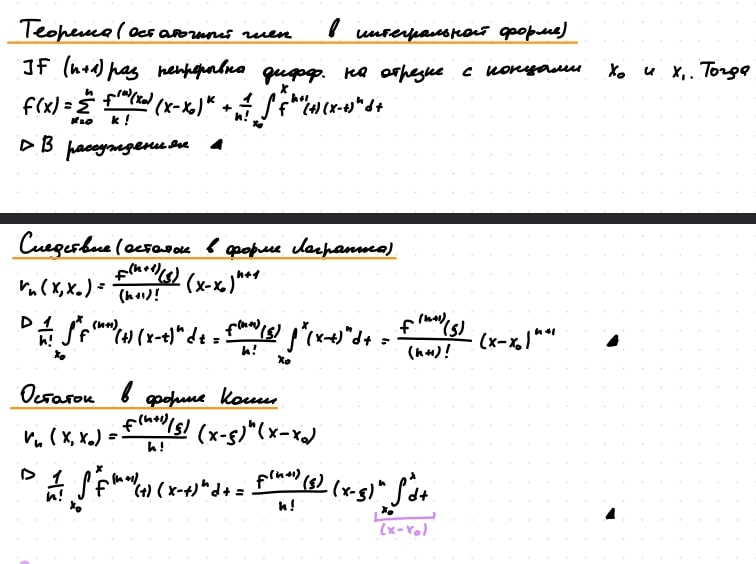 Теорема (остаточный член в интегральной форме)
If (n+1) раз непрерывна дифф. на отрезке с концами x₀ и x₁. Тогда
f(x) = ∑_{k=0}^{n} f^{(k)}(x₀)/k! (x-x₀)^k + 1/n! ∫_{x₀}^{x} f^{n+1}(t)(x-t)^n dt
▷ В рассуждениях ◀
Следствие (остаток в форме Лагранжа)
r_n(x,x₀) = f^{(n+1)}(ξ)/(n+1)! (x-x₀)^{n+1}
▷ 1/n! ∫_{x₀}^{x} f^{(n+1)}(t)(x-t)^n dt = f^{(n+1)}(ξ)/n! ∫_{x₀}^{x} (x-t)^n dt = f^{(n+1)}(ξ)/(n+1)! (x-x₀)^{n+1} ◀
Остаток в форме Коши
r_n(x,x₀) = f^{(n+1)}(ξ)/n! (x-ξ)^n (x-x₀)
▷ 1/n! ∫_{x₀}^{x} f^{(n+1)}(t)(x-t)^n dt = f^{(n+1)}(ξ)/n! (x-ξ)^n ∫_{x₀}^{x} dt ◀
(x-x₀)